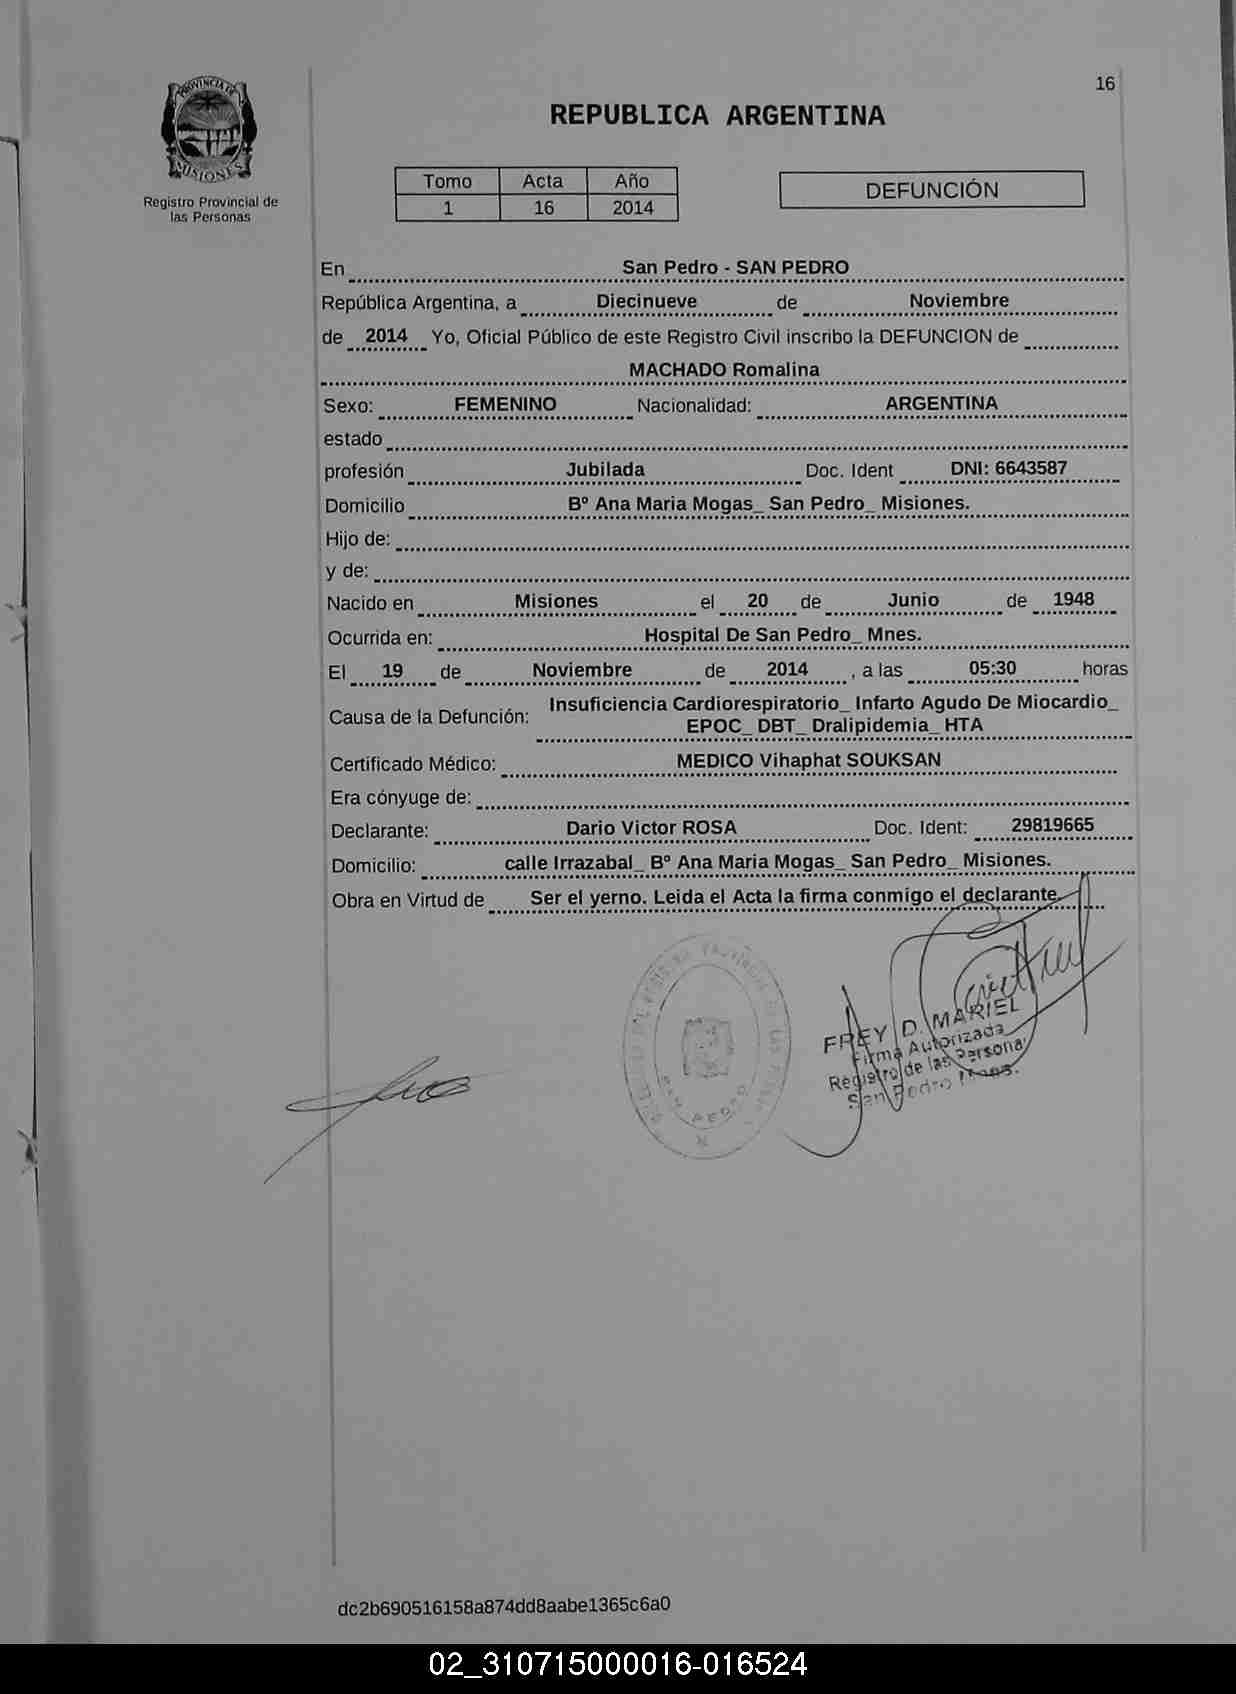 16
PROVINCIA DE
MISIONES
Registro Provincial de
las Personas
REPUBLICA ARGENTINA
Tomo Acta Año
1 16 2014
DEFUNCIÓN
En San Pedro - SAN PEDRO
República Argentina, a Diecinueve de Noviembre
de 2014 Yo, Oficial Público de este Registro Civil inscribo la DEFUNCION de
MACHADO Romalina
Sexo: FEMENINO Nacionalidad: ARGENTINA
estado
profesión Jubilada Doc. Ident DNI: 6643587
Domicilio Bº Ana Maria Mogas_ San Pedro_ Misiones.
Hijo de:
y de:
Nacido en Misiones el 20 de Junio de 1948
Ocurrida en: Hospital De San Pedro_ Mnes.
El 19 de Noviembre de 2014 , a las 05:30 horas
Causa de la Defunción: Insuficiencia Cardiorespiratorio_ Infarto Agudo De Miocardio_
EPOC_ DBT_ Dralipidemia_ HTA
Certificado Médico: MEDICO Vihaphat SOUKSAN
Era cónyuge de:
Declarante: Dario Victor ROSA Doc. Ident: 29819665
Domicilio: calle Irrazabal_ Bº Ana Maria Mogas_ San Pedro_ Misiones.
Obra en Virtud de Ser el yerno. Leida el Acta la firma conmigo el declarante.
SAN PEDRO
FREY D. MARIEL
Firma Autorizada
Registro de las Personas
San Pedro Mnes.
dc2b690516158a874dd8aabe1365c6a0
02_310715000016-016524